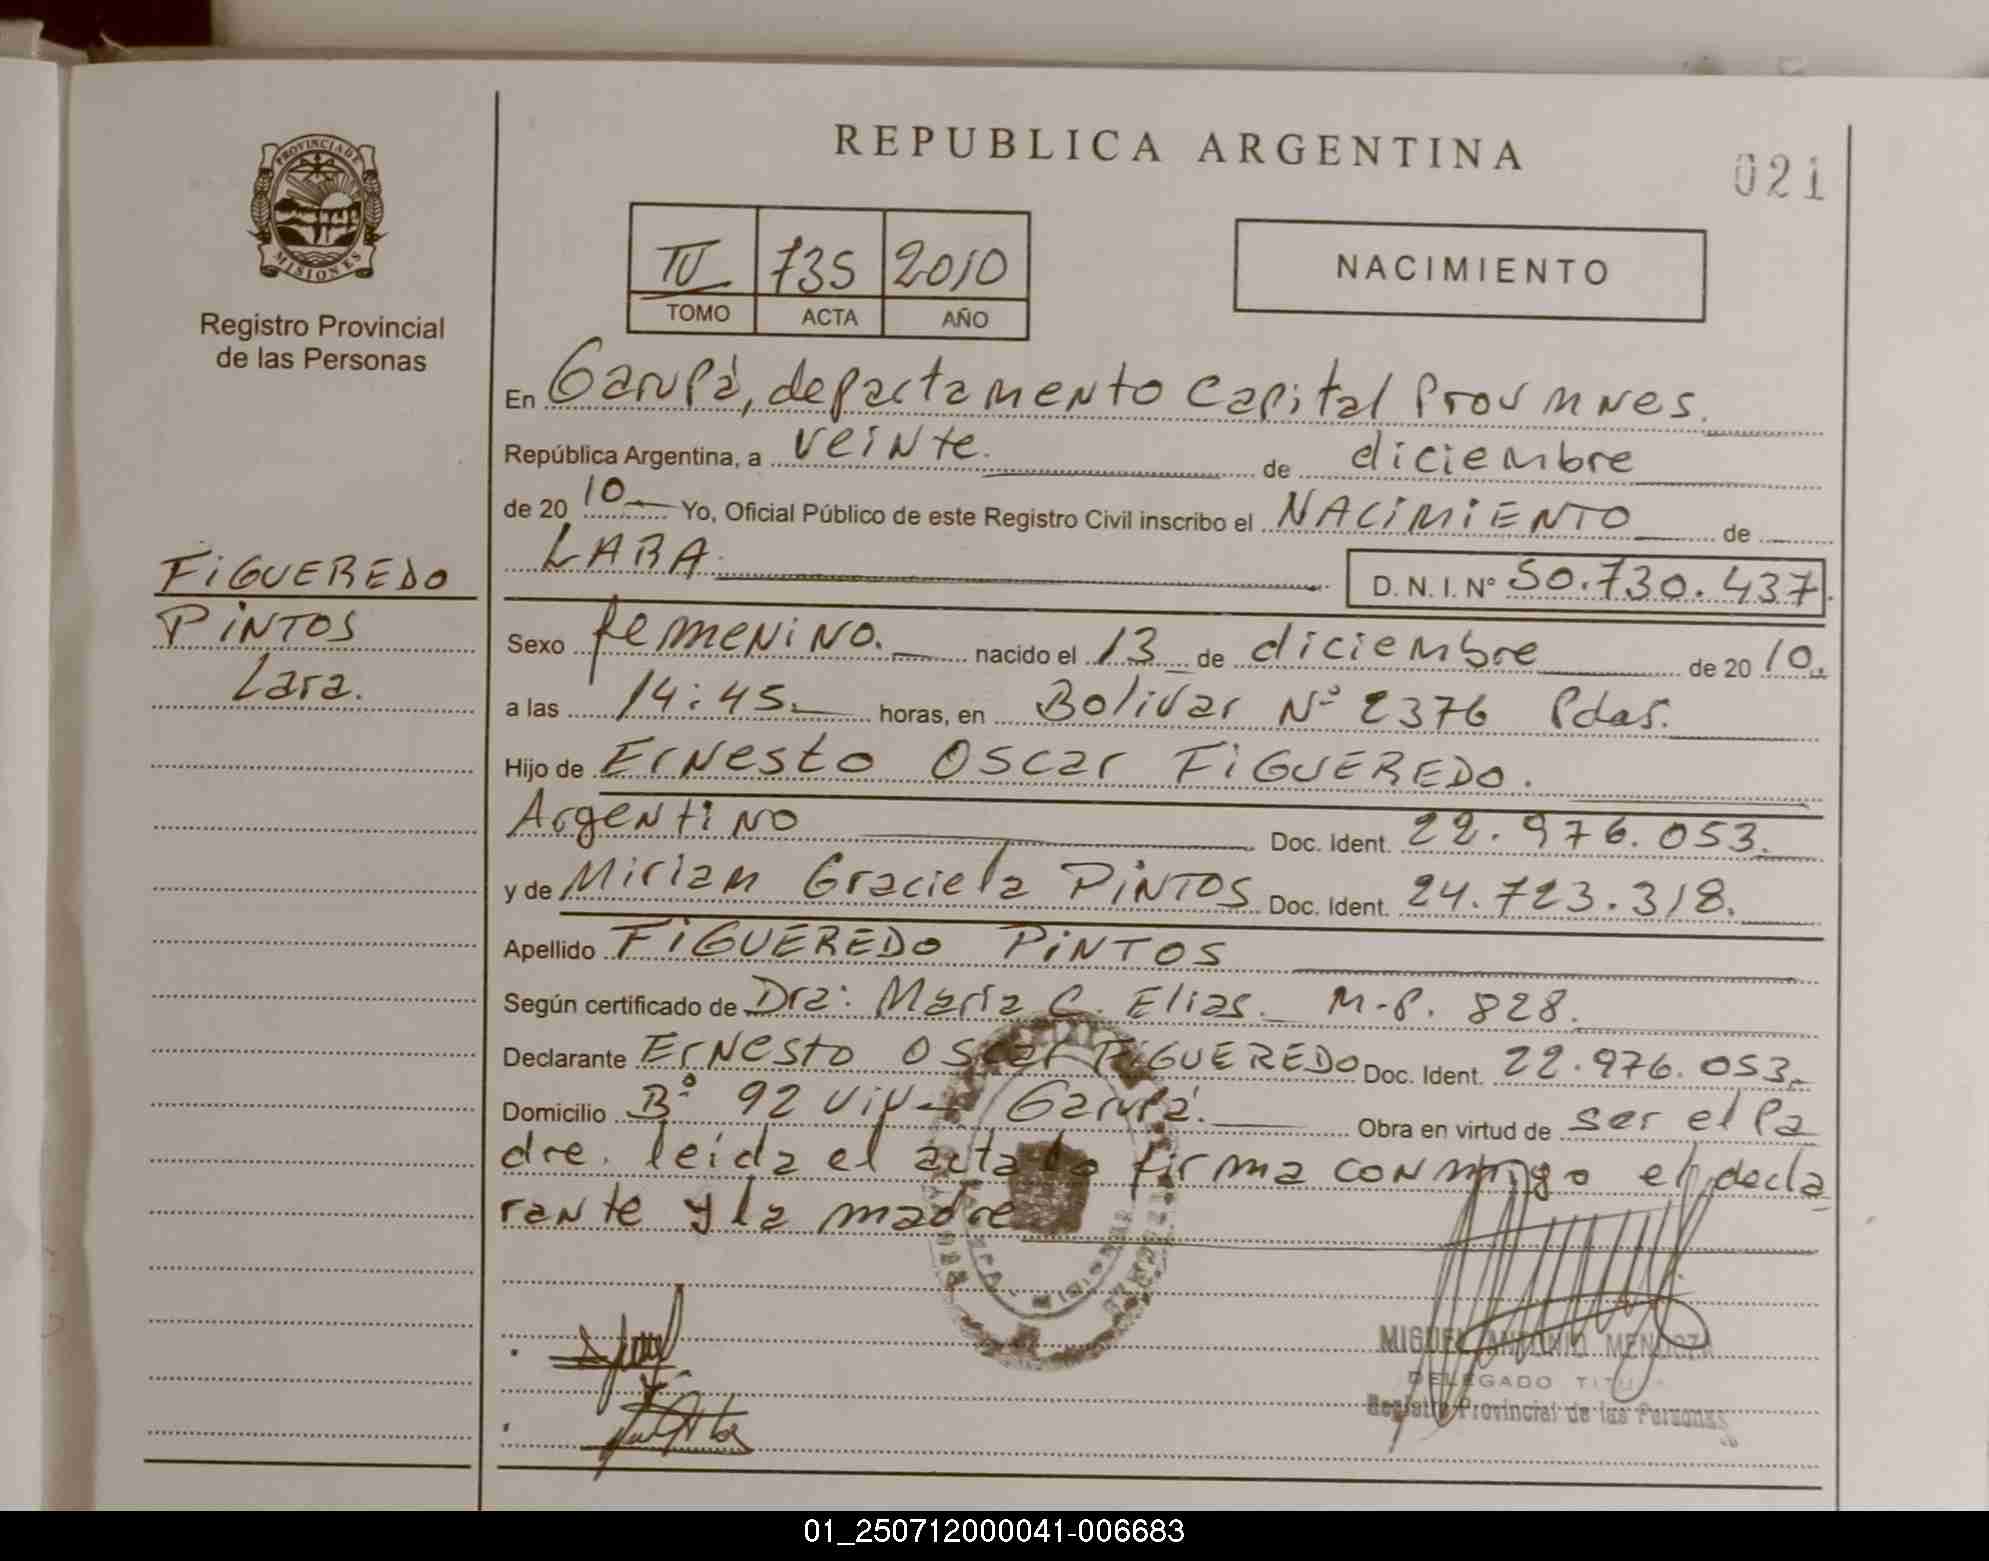 REPUBLICA ARGENTINA
021
PROVINCIA DE
MISIONES
Registro Provincial
de las Personas
IV 735 2010
TOMO ACTA AÑO
NACIMIENTO
En Garupá, departamento Capital Prov Mnes.
República Argentina, a veinte. de diciembre
de 2010 Yo, Oficial Público de este Registro Civil inscribo el NACIMIENTO de
LARA D.N.I. Nº 50.730.437
FIGUEREDO
PINTOS
Lara.
Sexo femenino. nacido el 13 de diciembre de 2010.
a las 14:45 horas, en Bolivar Nº 2376 Pdas.
Hijo de Ernesto Oscar FIGUEREDO.
Argentino Doc. Ident. 22.976.053.
y de Miriam Graciela PINTOS Doc. Ident. 24.723.318.
Apellido FIGUEREDO PINTOS
Según certificado de Dra: María C. Elias. M.P. 828.
Declarante Ernesto Oscar FIGUEREDO Doc. Ident. 22.976.053.
Domicilio Bº 92 Viv- Garupá. Obra en virtud de ser el Pa
dre. leida el acta la firma conmigo el decla
rante y la madre
MIGUEL ANTONIO MENDOZA
DELEGADO TITULAR
Registro Provincial de las Personas
01_250712000041-006683